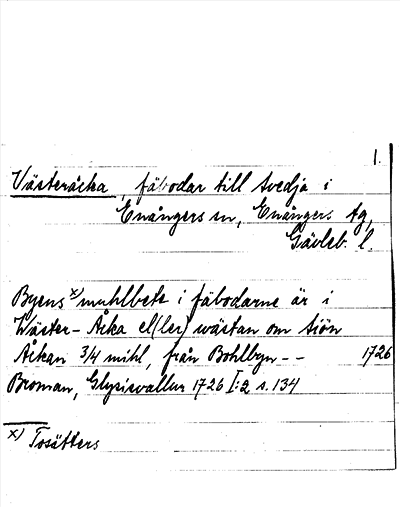 1.
Västeråcka, fäbodar till Svedja i
Enångers sn, Enångers tg,
Gävleb. l.
Byens x) muhlbete i fäbodarne är i
Wäster-Åcka el(ler) wästan om siön
Åckan 3/4 mihl, från Bohlbyn -- 1726
Broman, Glysisvallur 1726 I:2 s. 134
x) Tosätters